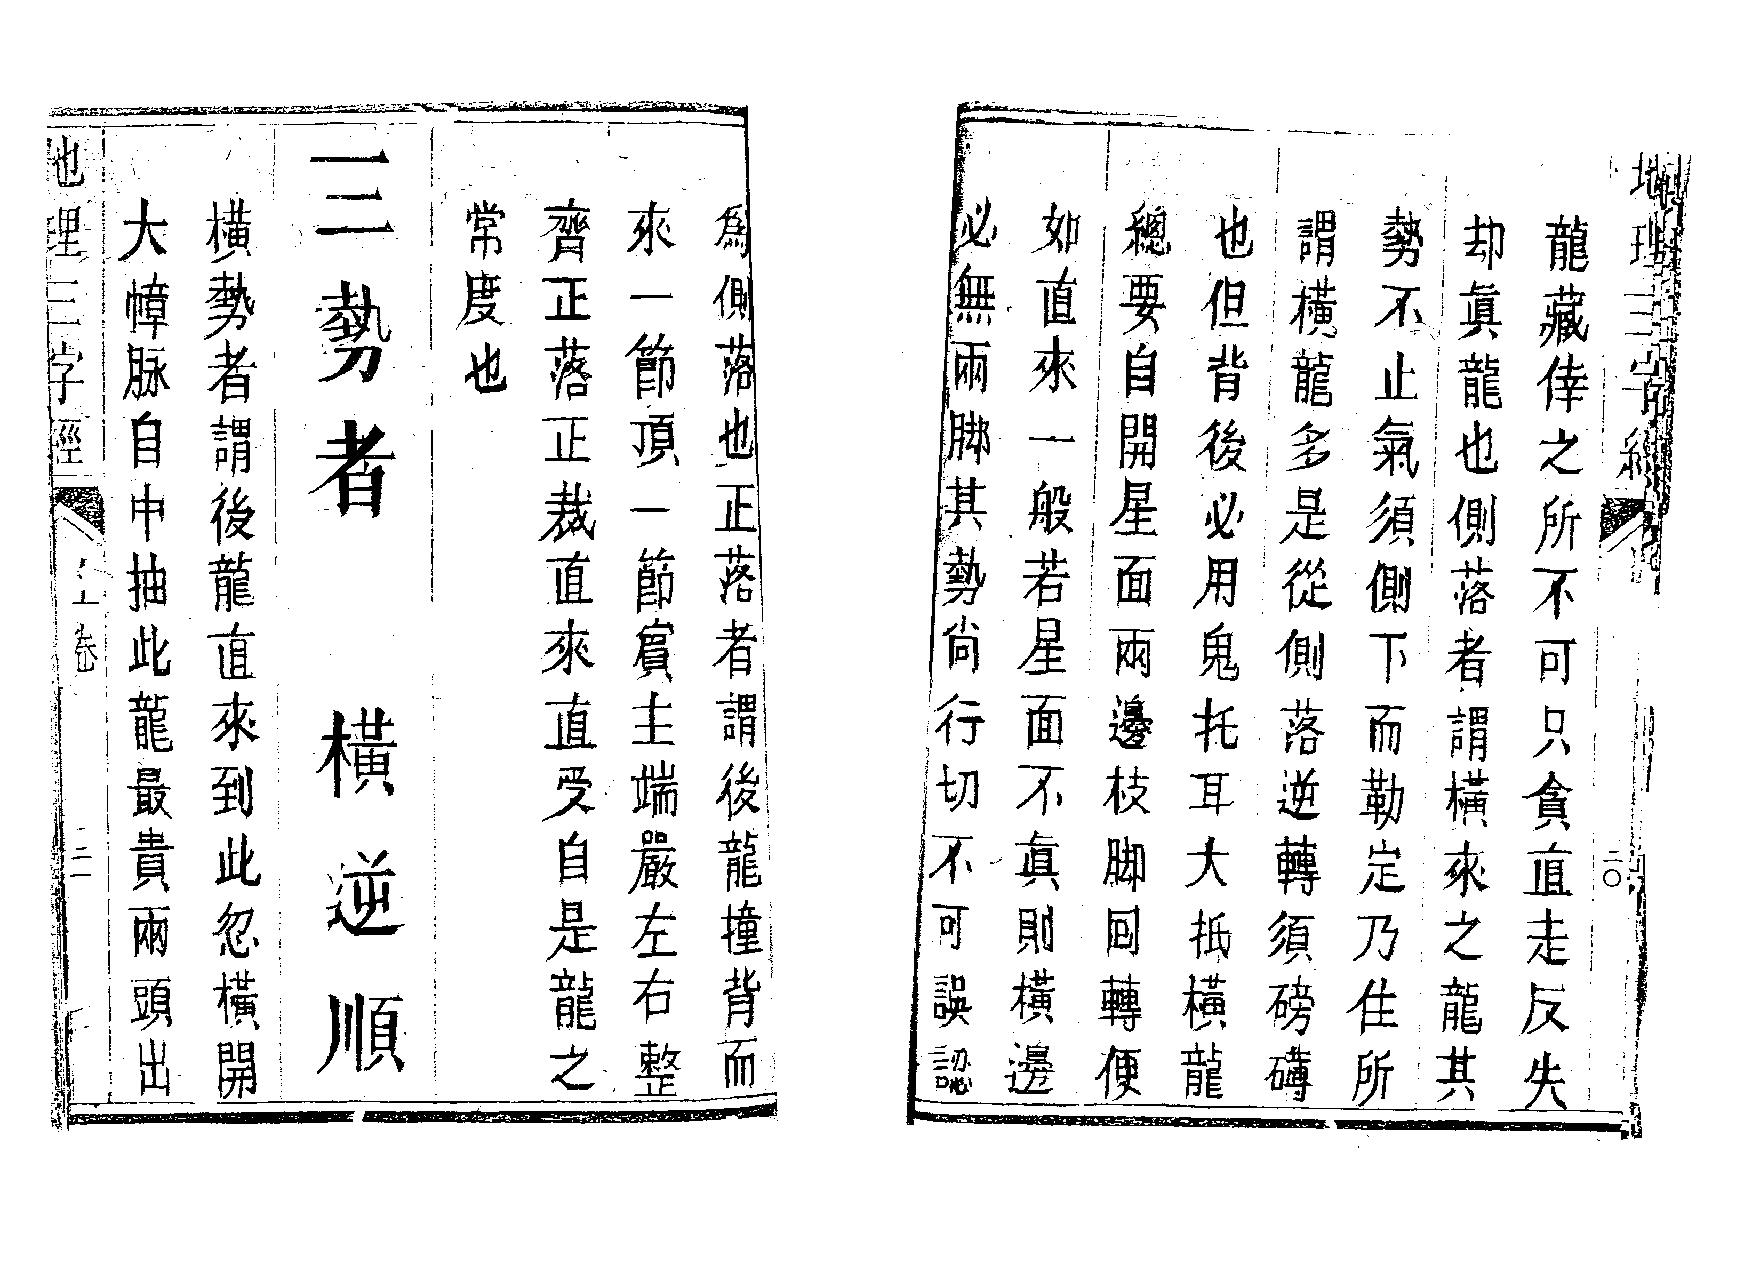 龍藏倖之所不可只貪直走反失
却眞龍也側落者謂橫來之龍其
勢不止氣須側下而勒定乃住所
謂橫龍多是從側落逆轉須磅礴
也但背後必用鬼托耳大抵橫龍
總要自開星面兩邊枝脚回轉便
如直來一般若星面不眞則橫邊
必無兩脚其勢尚行切不可誤認
二〇
為側落也正落者謂後龍撞背而
來一節頂一節賓主端嚴左右整
齊正落正裁直來直受自是龍之
常度也
三勢者 橫逆順
橫勢者謂後龍直來到此忽橫開
大幛脉自中抽此龍最貴兩頭出
地理三字經
上卷